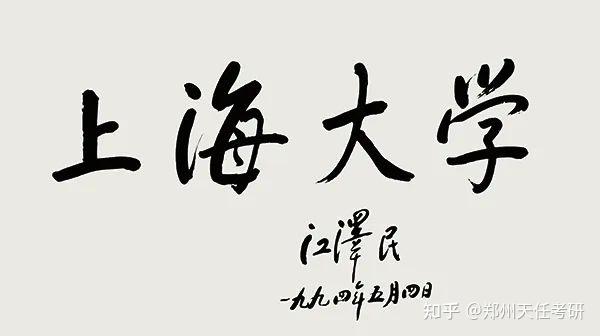 上海大学
江澤民
一九九四年五月四日
知乎 @郑州天任考研